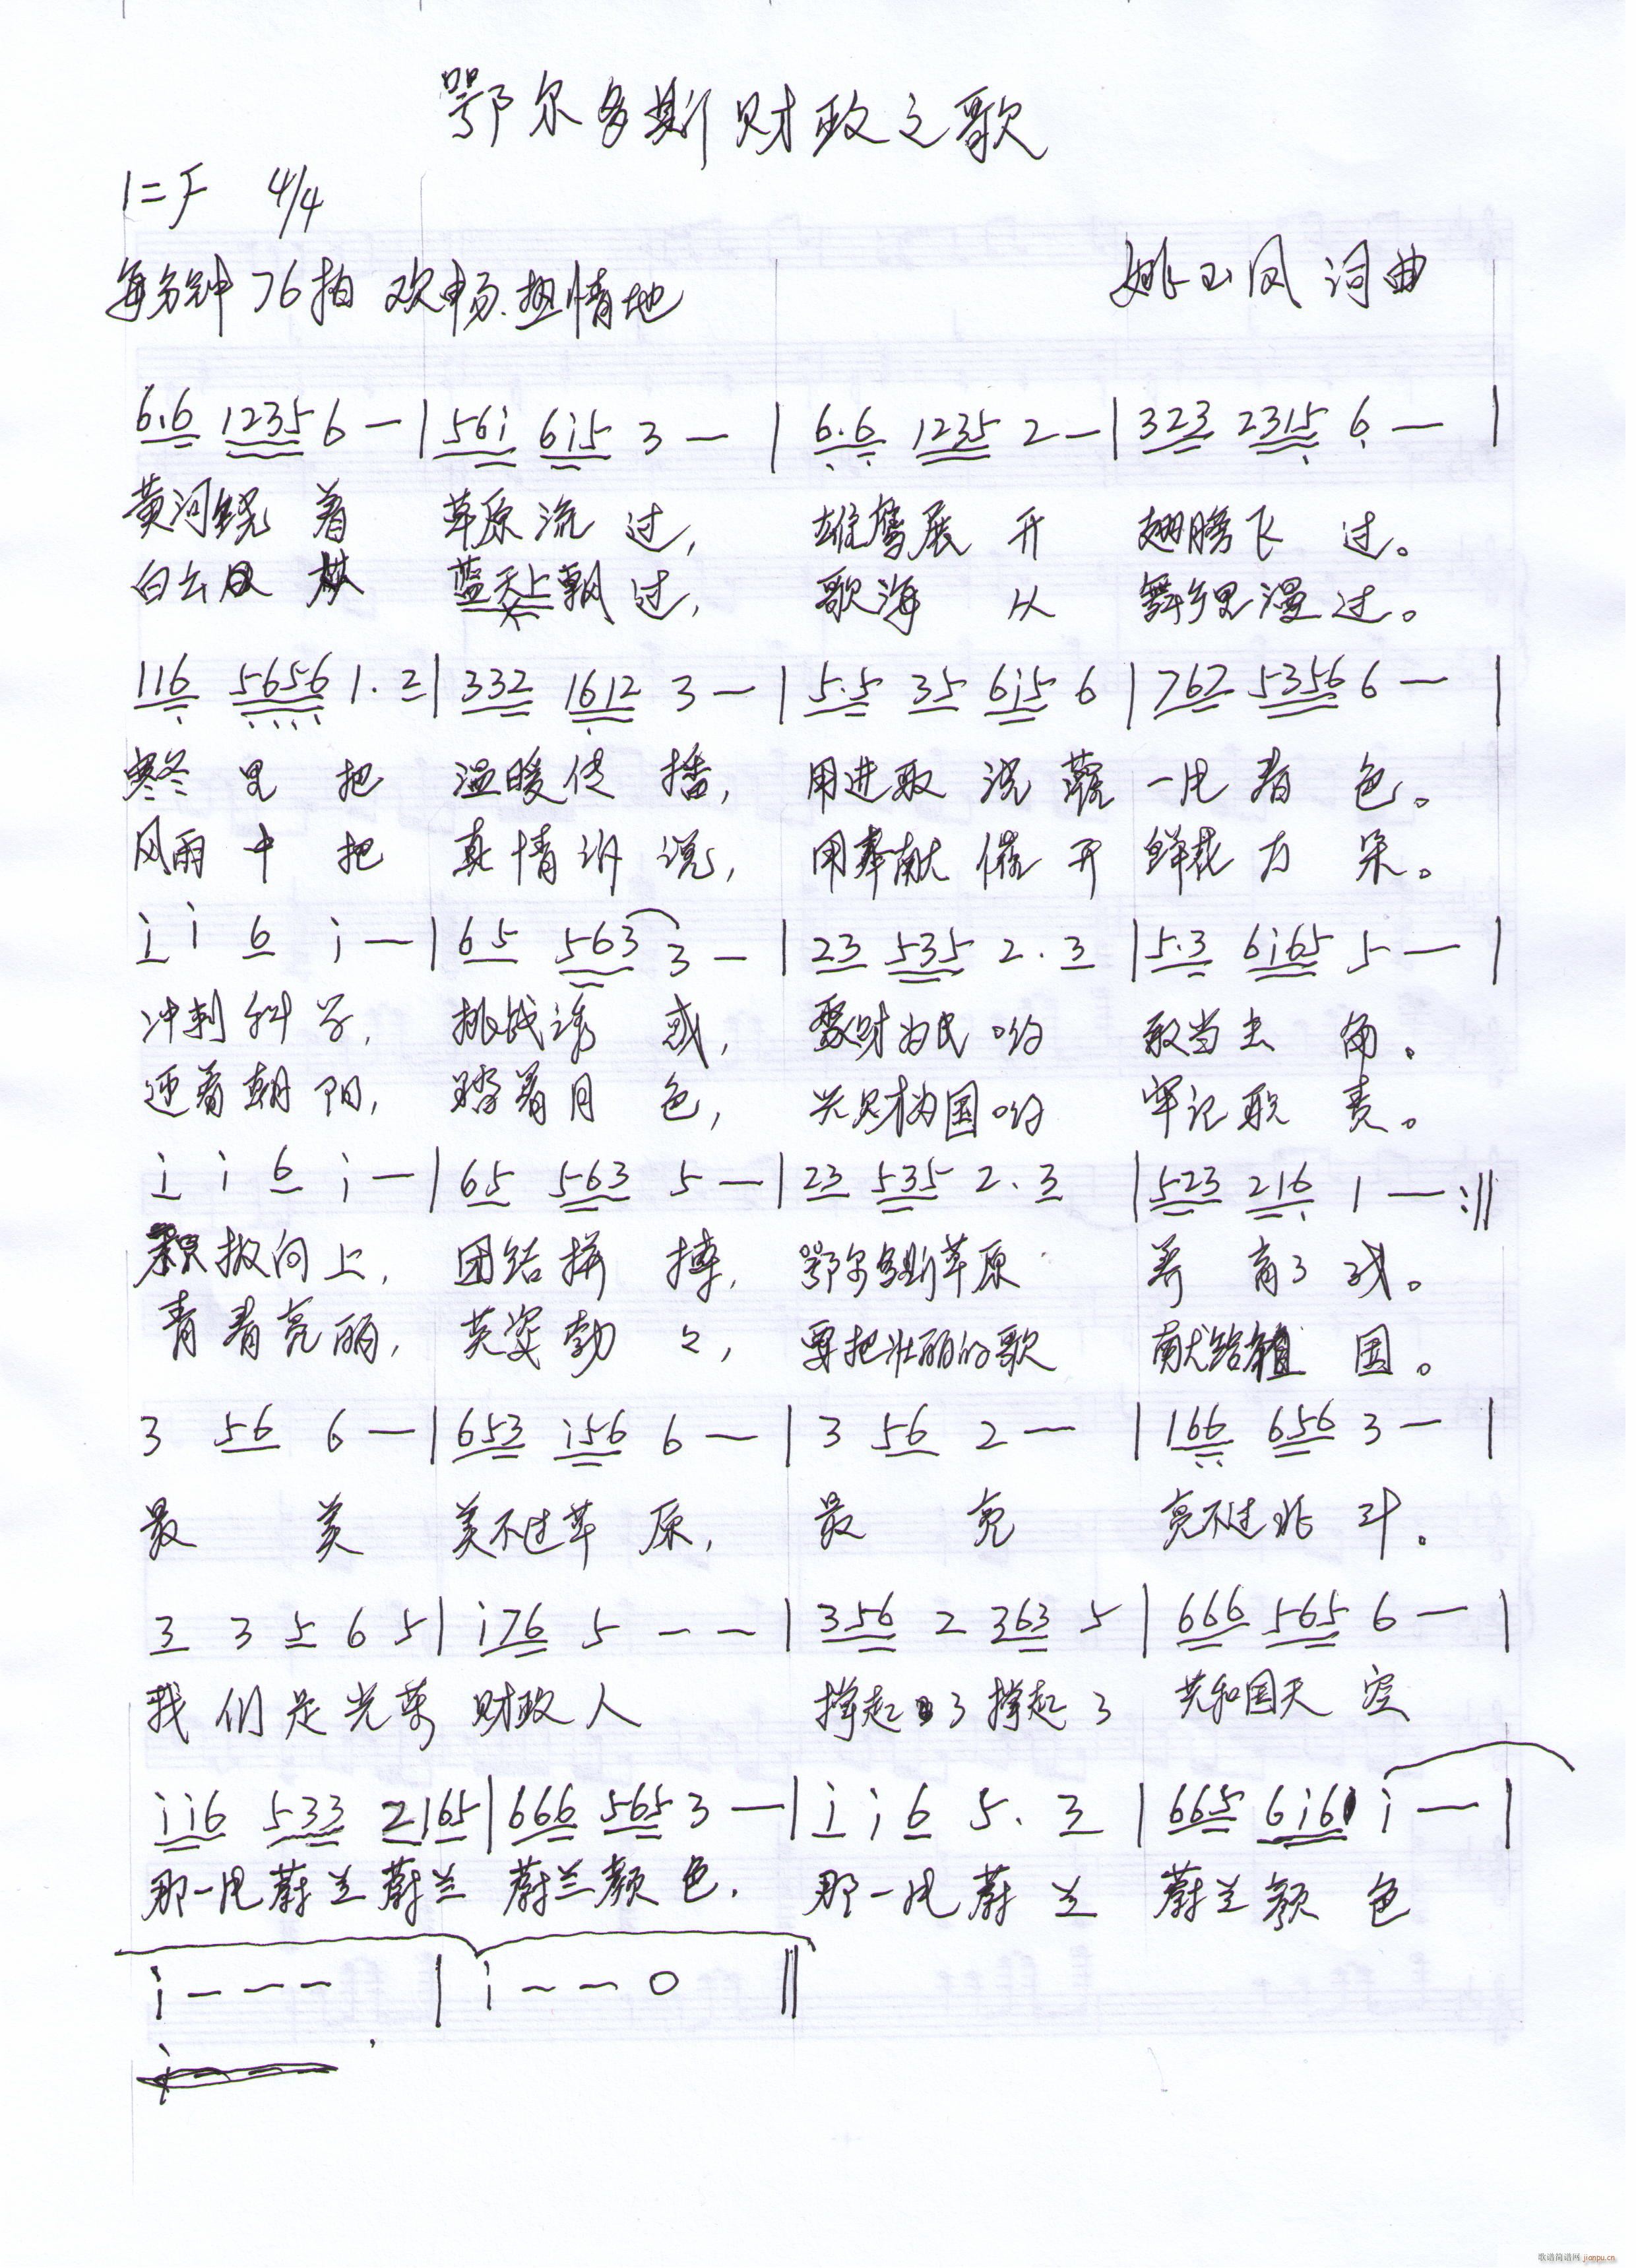 鄂尔多斯财政之歌
1=F 4/4
每分钟76拍 欢畅.热情地 姚玉凤 词曲
6.6 1235 6 — | 561̇ 61̇5 3 — | 6.6 1235 2 — | 323 2315 6 — |
黄河绕着 草原流过, 雄鹰展开 翅膀飞过。
白云 蓝天上飘过, 歌海从 舞乡里漫过。
116 5656 1. 2 | 332 1612 3 — | 5.5 35 61̇5 6 | 767 5356 6 — |
寒冬里把 温暖传播, 用进取浇灌 一片春色。
风雨中把 真情诉说, 用奉献催开 鲜花万朵。
1̇ 1̇ 6 1̇ — | 65 563 3 — | 23 535 2. 3 | 5.3 61̇65 5 — |
冲刺科学, 挑战诱惑, 聚财为民哟 敢当主角。
迎着朝阳, 踏着月色, 兴财为国哟 牢记职责。
1̇ 1̇ 6 1̇ — | 65 563 5 — | 23 535 2. 3 | 523 216 1 — :||
积极向上, 团结拼搏, 鄂尔多斯草原 养育了我。
青春亮丽, 英姿勃々, 要把壮丽的歌 献给祖国。
3 56 6 — | 653 1̇56 6 — | 3 56 2 — | 166 656 3 — |
最美 美不过草原, 最亮 亮不过北斗。
3 3 5 6 5 | 1̇76 5 — — | 356 2 363 5 | 666 565 6 — |
我们是光荣 财政人 撑起了撑起了 共和国天空
1̇1̇6 533 2165 | 666 565 3 — | 1̇ 1̇ 6 5. 3 | 665 61̇61̇ 1̇ — |
那一片蔚兰蔚兰 蔚兰颜色. 那一片蔚兰 蔚兰颜色
1̇ — — — | 1̇ — — 0 ||
歌谱简谱网 jianpu.cn